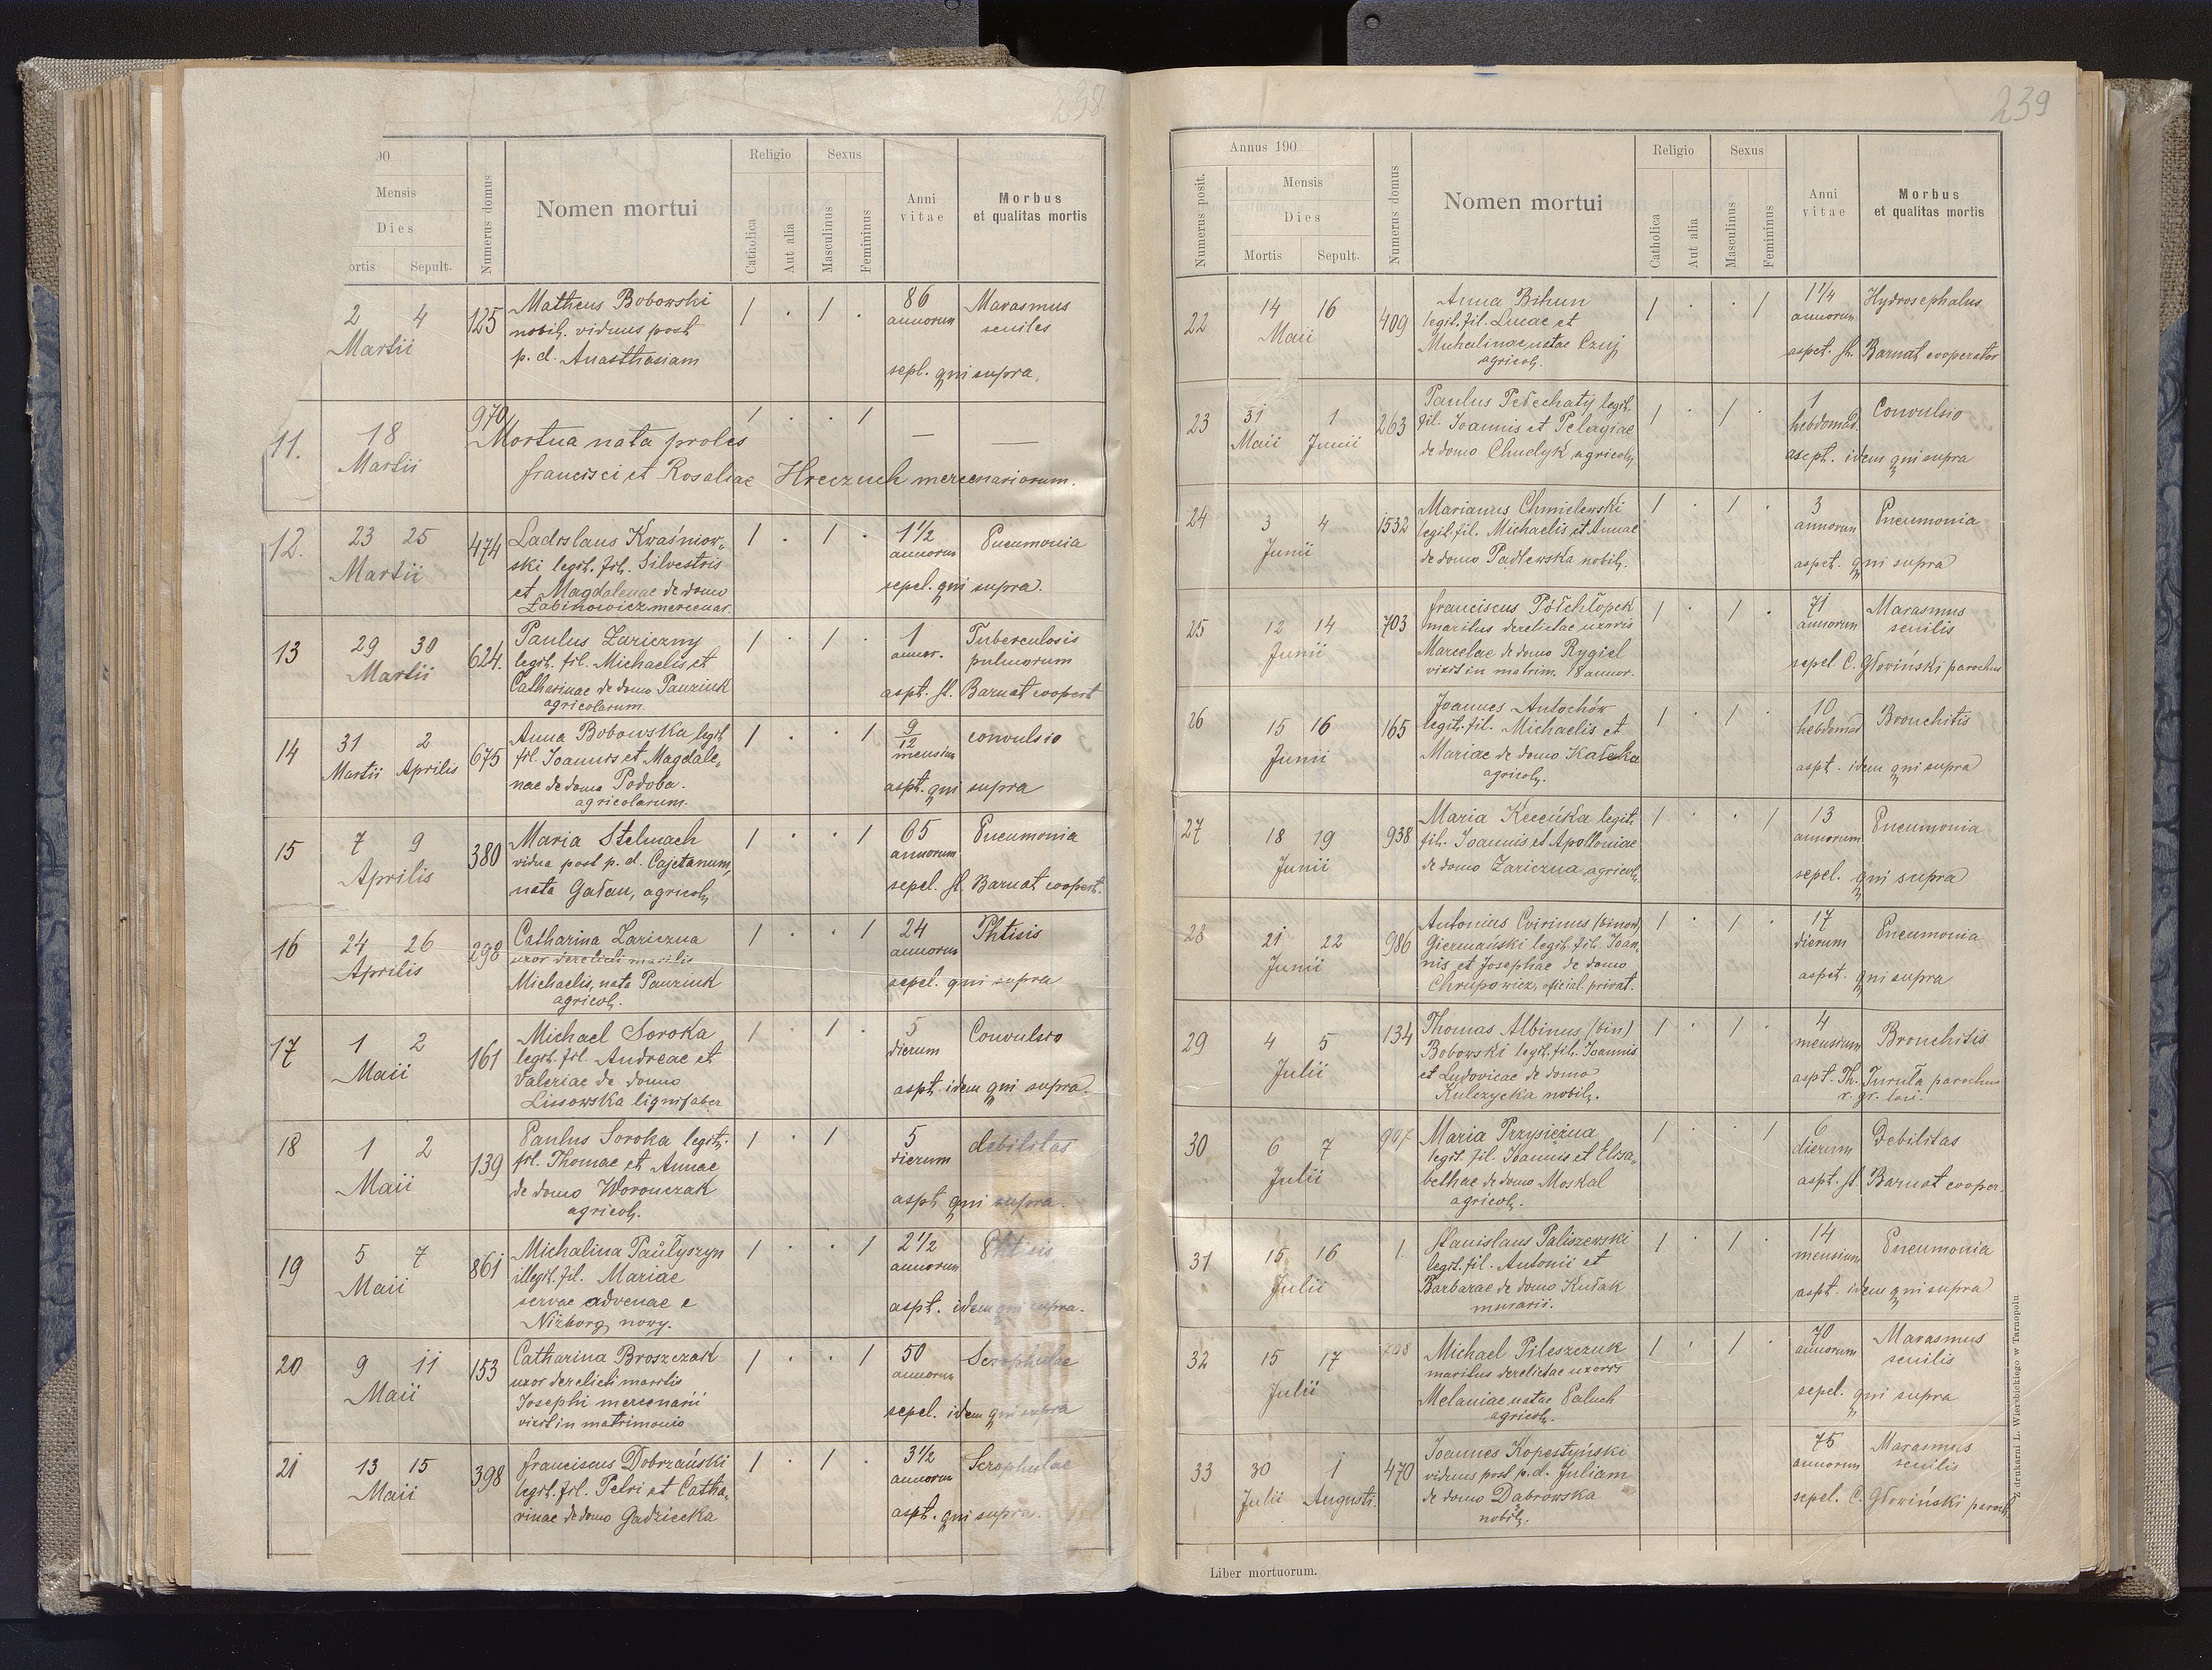 238
90
Mensis
Dies
ortis Sepult.
Numerus domus
Nomen mortui
Religio
Catholica
Aut alia
Sexus
Masculinus
Femininus
Anni
vitae
Morbus
et qualitas mortis
2 4
Martii
125
Matheus Bobowski
nobil. viduus post
p. d. Anasthasiam
1 . 1 .
86
annorum
Marasmus
seniles
sepl. qui supra.
11.
18
Martii
970
Mortua nata proles
Francisci et Rosaliae Hreczuch mercenariorum.
1 . . 1
— —
12.
23 25
Martii
474
Ladislaus Kwaśniow„
ski legit. fil. Silvestris
et Magdalenae de domo
Łabinowicz mercenar.
1 . 1 .
1 1/2
annorum
Pneumonia
sepel. qui supra.
13
29 30
Martii
624.
Paulus Zariczny
legit. fil. Michaelis et
Catharinae de domo Pauziuk
agricolarum.
1 . 1 .
1
annor.
Tuberculosis
pulmorum
aspt. St. Barnat coopert
14
31 2
Martii Aprilis
675
Anna Bobowska legit.
fil. Joannis et Magdale„
nae de domo Podoba.
agricolarum.
1 . . 1
9/12
mensium
convulsio
aspt. qui supra
15
7 9
Aprilis
380
Maria Stelmach
vidua post p. d. Cajetanum,
nata Gałan, agricol.
1 . . 1
65
annorum
Pneumonia
sepel. St. Barnat coopert.
16
24 26
Aprilis
298
Catharina Zariczna
uxor derelicti maritis
Michaelis, nata Pauziuk
agricol.
1 . . 1
24
annorum
Phtisis
sepel. qui supra
17
1 2
Maii
161
Michael Soroka
legit. fil. Andreae et
Valeriae de domo
Lissowska lignifaber
1 . 1 .
5
dierum
Convulsio
aspt. idem qui supra.
18
1 2
Maii
139
Paulus Soroka legit.
fil. Thomae et Annae
de domo Woronczak
agricol.
1 . 1
5
dierum
debilitas
aspt qui supra.
19
5 7
Maii
861
Michalina Paułyszyn
illegit. fil. Mariae
servae advenae e
Niżborg nowy.
1 . . 1
2 1/2
annorum
Phtisis
aspt. idem qui supra.
20
9 11
Maii
153
Catharina Broszczak
uxor derelicti maritis
Josephi mercenarii
vixit in matrimonio
1 . . 1
50
annorum
Scrophulae
sepel. idem qui supra
21
13 15
Maii
398
Franciscus Dobrzański
legit. fil. Petri et Catha„
rinae de domo Gadziecka
1 . 1 .
3 1/2
annorum
Scrophulae
aspt. qui supra.
239
Annus 190
Numerus posit.
Mensis
Dies
Mortis Sepult.
Numerus domus
Nomen mortui
Religio
Catholica
Aut alia
Sexus
Masculinus
Femininus
Anni
vitae
Morbus
et qualitas mortis
22
14 16
Maii
409
Anna Bihun
legit. fil. Lucae et
Michalinae natae Czuj
agricol.
1 . . 1
1 1/4
annorum
Hydrosephalus
aspct. St. Barnat cooperator
23
31 1
Maii Junii
263
Paulus Pełechaty legit.
fil. Joannis et Pelagiae
de domo Chudyk agricol.
1 . 1 .
1
hebdomad.
Convulsio
asept. idem qui supra
24
3 4
Junii
1532
Marianus Chmielewski
legit. fil. Michaelis et Annae
de domo Padlewska nobil.
1 . 1 .
3
annorum
Pneumonia
aspct. qui supra
25
12 14
Junii
703
Franciscus Półchłopek
maritus derelictae uxoris
Marcelae de domo Rygiel
vixit in matrim. 18 annor.
1 . 1 .
71
annorum
Marasmus
senilis
sepel C. Głowiński parochus
26
15 16
Junii
165
Joannes Antochów
legit. fil. Michaelis et
Mariae de domo Kałaka
agricol.
1 . 1
10
hebdomad
Bronchitis
aspt. idem qui supra
27
18 19
Junii
938
Maria Kecuńka legit.
fil. Joannis et Apolloniae
de domo Zariczna agricol.
1 . . 1
13
annorum
Pneumonia
sepel. qui supra
28
21 22
Junii
986
Antonius Cvirinus (binom)
Giermański legit. fil. Joan„
nis et Josephae de domo
Chrupowicz, oficial. privat.
1 . 1 .
17
dierum
Pneumonia
aspct. qui supra
29
4 5
Julii
134
Thomas Albinus (bin)
Bobowski legit. fil. Joannis
et Ludovicae de domo
Kulczycka nobil.
1 . 1 .
4
mensium
Bronchitis
aspt. Th. Juruła parochus
r. gr. loci.
30
6 7
Julii
907
Maria Przysiężna
legit. fil. Joannis et Elisa„
bethae de domo Moskal
agricol.
1 . . 1
6
dierum
Debilitas
aspt. St Barnat cooper.
31
15 16
Julii
1.
Stanislaus Paliszewski
legit. fil. Antonii et
Barbarae de domo Kułak
murarii.
1 . 1 .
14
mensium
Pneumonia
aspt. idem qui supra
32
15 17
Julii
708
Michael Pileszczuk
maritus derelictae uxoris
Melaniae natae Paluch
agricol.
1 . 1 .
70
annorum
Marasmus
senilis
sepel. qui supra
33
30 1
Julii Augusti.
470
Joannes Kopestyński
viduus post p. d. Juliam
de domo Dąbrowska
nobil.
75
annorum
Marasmus
senilis
sepel. C. Głowiński paroch.
Liber mortuorum.
Z drukarni L. Wierzbickiego w Tarnopolu